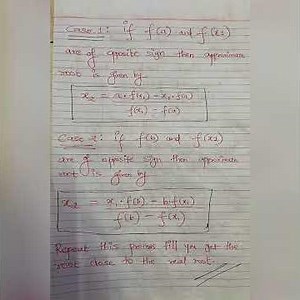 Case 1: if f(a) and f(x1)
are of oposite sign then approximate
root is given by
x2 = a·f(x1) - x1·f(a) / f(x1) - f(a)
Case 2: if f(b) and f(x1)
are of oposite sign then approximate
root is given by
x2 = x1·f(b) - b·f(x1) / f(b) - f(x1)
Repeat this process till you get the
root close to the real root.